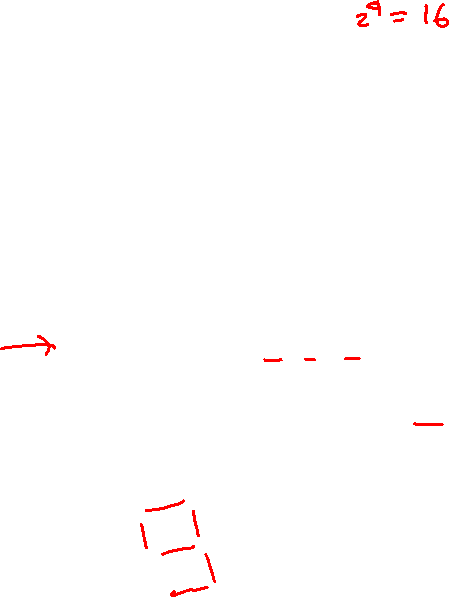 2⁴ = 16
9